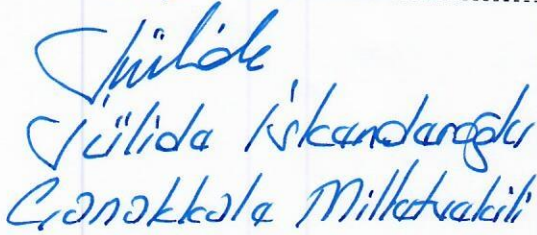 Jülide
Jülide İskenderoğlu
Çanakkale Milletvekili